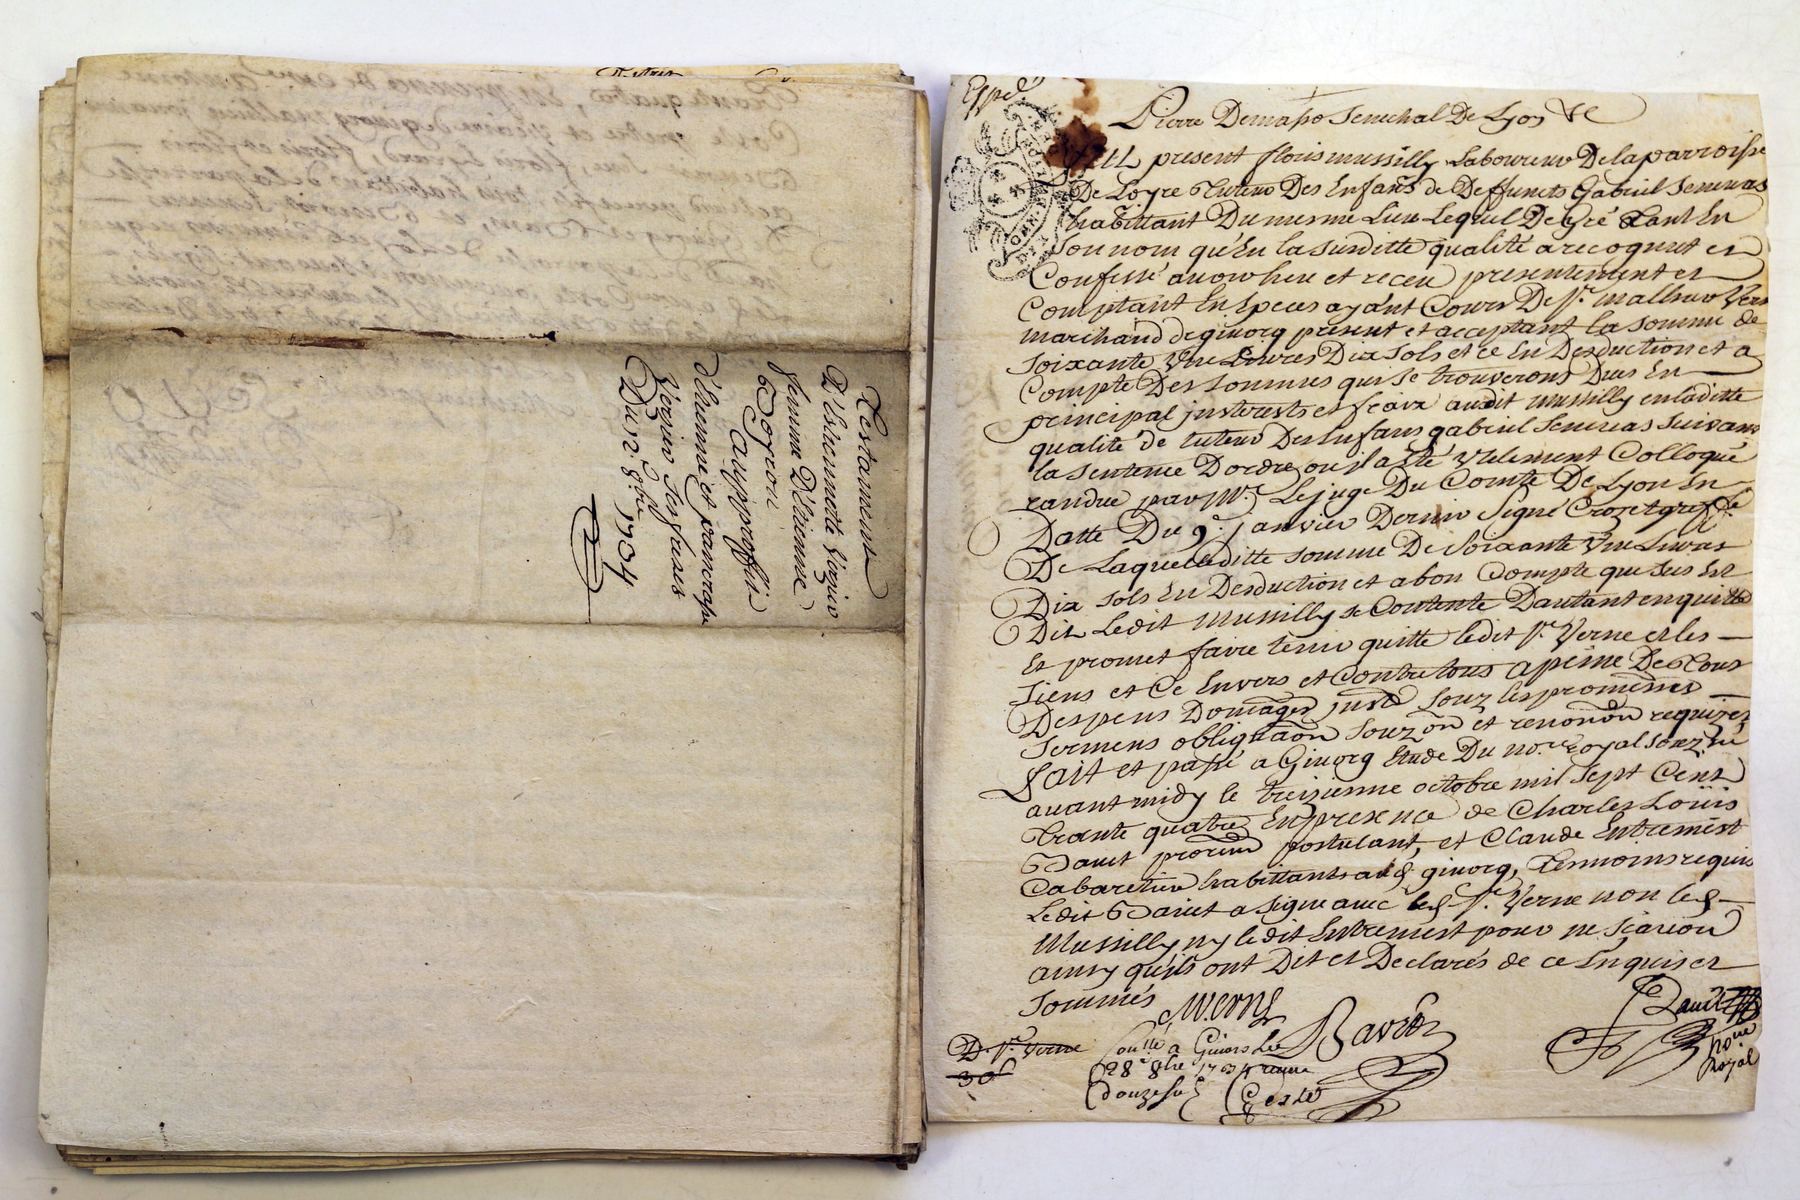 Testament
D'Estiennette Verzier
femme D'Etienne
Bogiou
Aupproffit
d'étienne et pancrasse
Verzier Ses freres
Du 12. 8bre 1704
Expéd.
Pierre Demaso Senechal De Lyon &c
present floris mussilly Laboureur De la parroisse
De Loyre tuteur Des Enfans de Deffuncts Gabriel Seneruas
habittant Du mesme Lieu Lequel De Gré tant En
Son nom qu'En la Susditte qualité a recognut et
Confessé avoir heu et receu presentement et
Comptant En Speces ayant Cours De Sr. mathieu Verne
marchand de givorg present et acceptant la Somme de
Soixante Une Livres Dix Sols et ce En Desduction et a
Compte Des Sommes qui Se trouveront Dues En
principal jnterests et fraix audit mussilly en laditte
qualité de tuteur Des Enfans gabriel Seneruas Suivant
la Sentence D'ordre ou il a été Utilement Colloqué
randue par Mr. Le juge Du Comté De Lyon En
Datte Du 9e. janvier Dernier Signé Crozet greffe
De Laquelleditte Somme De Soixante Une Livres
Dix Sols En Desduction et a bon Compte que Sus Est
Dit Ledit Mussilly se Contente D'autant en quitte
Et promet faire tenir quitte ledit Sr. Verne et les
Siens et Ce Envers et Contre tous a peine De Tous
Despens Domages justs Souz les promesses
Sermens obligaon Souzon et renonon requizes
fait et passé a Givorg Etude Du no.re Royal Souz.né
avant midy le treizienne octobre mil Sept Cent
trante quatre En presence de Charles Loüis
Davit procreur postulant, et Claude Entremest
Cabaretier habittants aud. givorg, Tesmoins requis
Ledit Davit a Signe avec led. Sr. Verne non led.
Mussilly ny ledit Entremest pour ne Scavoir
ainsy qu'ils ont Dit et Declarés de ce Enquis et
Sommés
M. verne
Davit
D. Sr. Verne
30s
Conllé a Givors le
28e 8bre 1734 reçu
douze sols
no.re
Royal